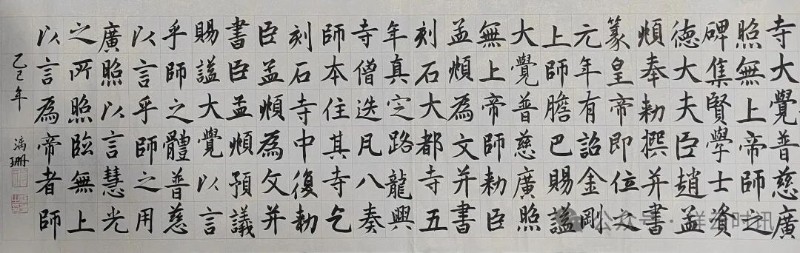 寺大覺普慈廣
照無上帝師之
碑集賢學士資
德大夫臣趙孟
頫奉勅撰并書
篆皇帝即位之
元年有詔金剛
上師膽巴賜諡
大覺普慈廣照
無上帝師勅臣
孟頫為文并書
刻石大都寺五
年真定路龍興
寺僧迭凡八奏
師本住其寺乞
刻石寺中復勅
臣孟頫為文并
書臣孟頫預議
賜諡大覺以言
乎師之體普慈
以言乎師之用
廣照以言慧光
之所照臨無上
以言為帝者師
乙巳年 珊
公众号